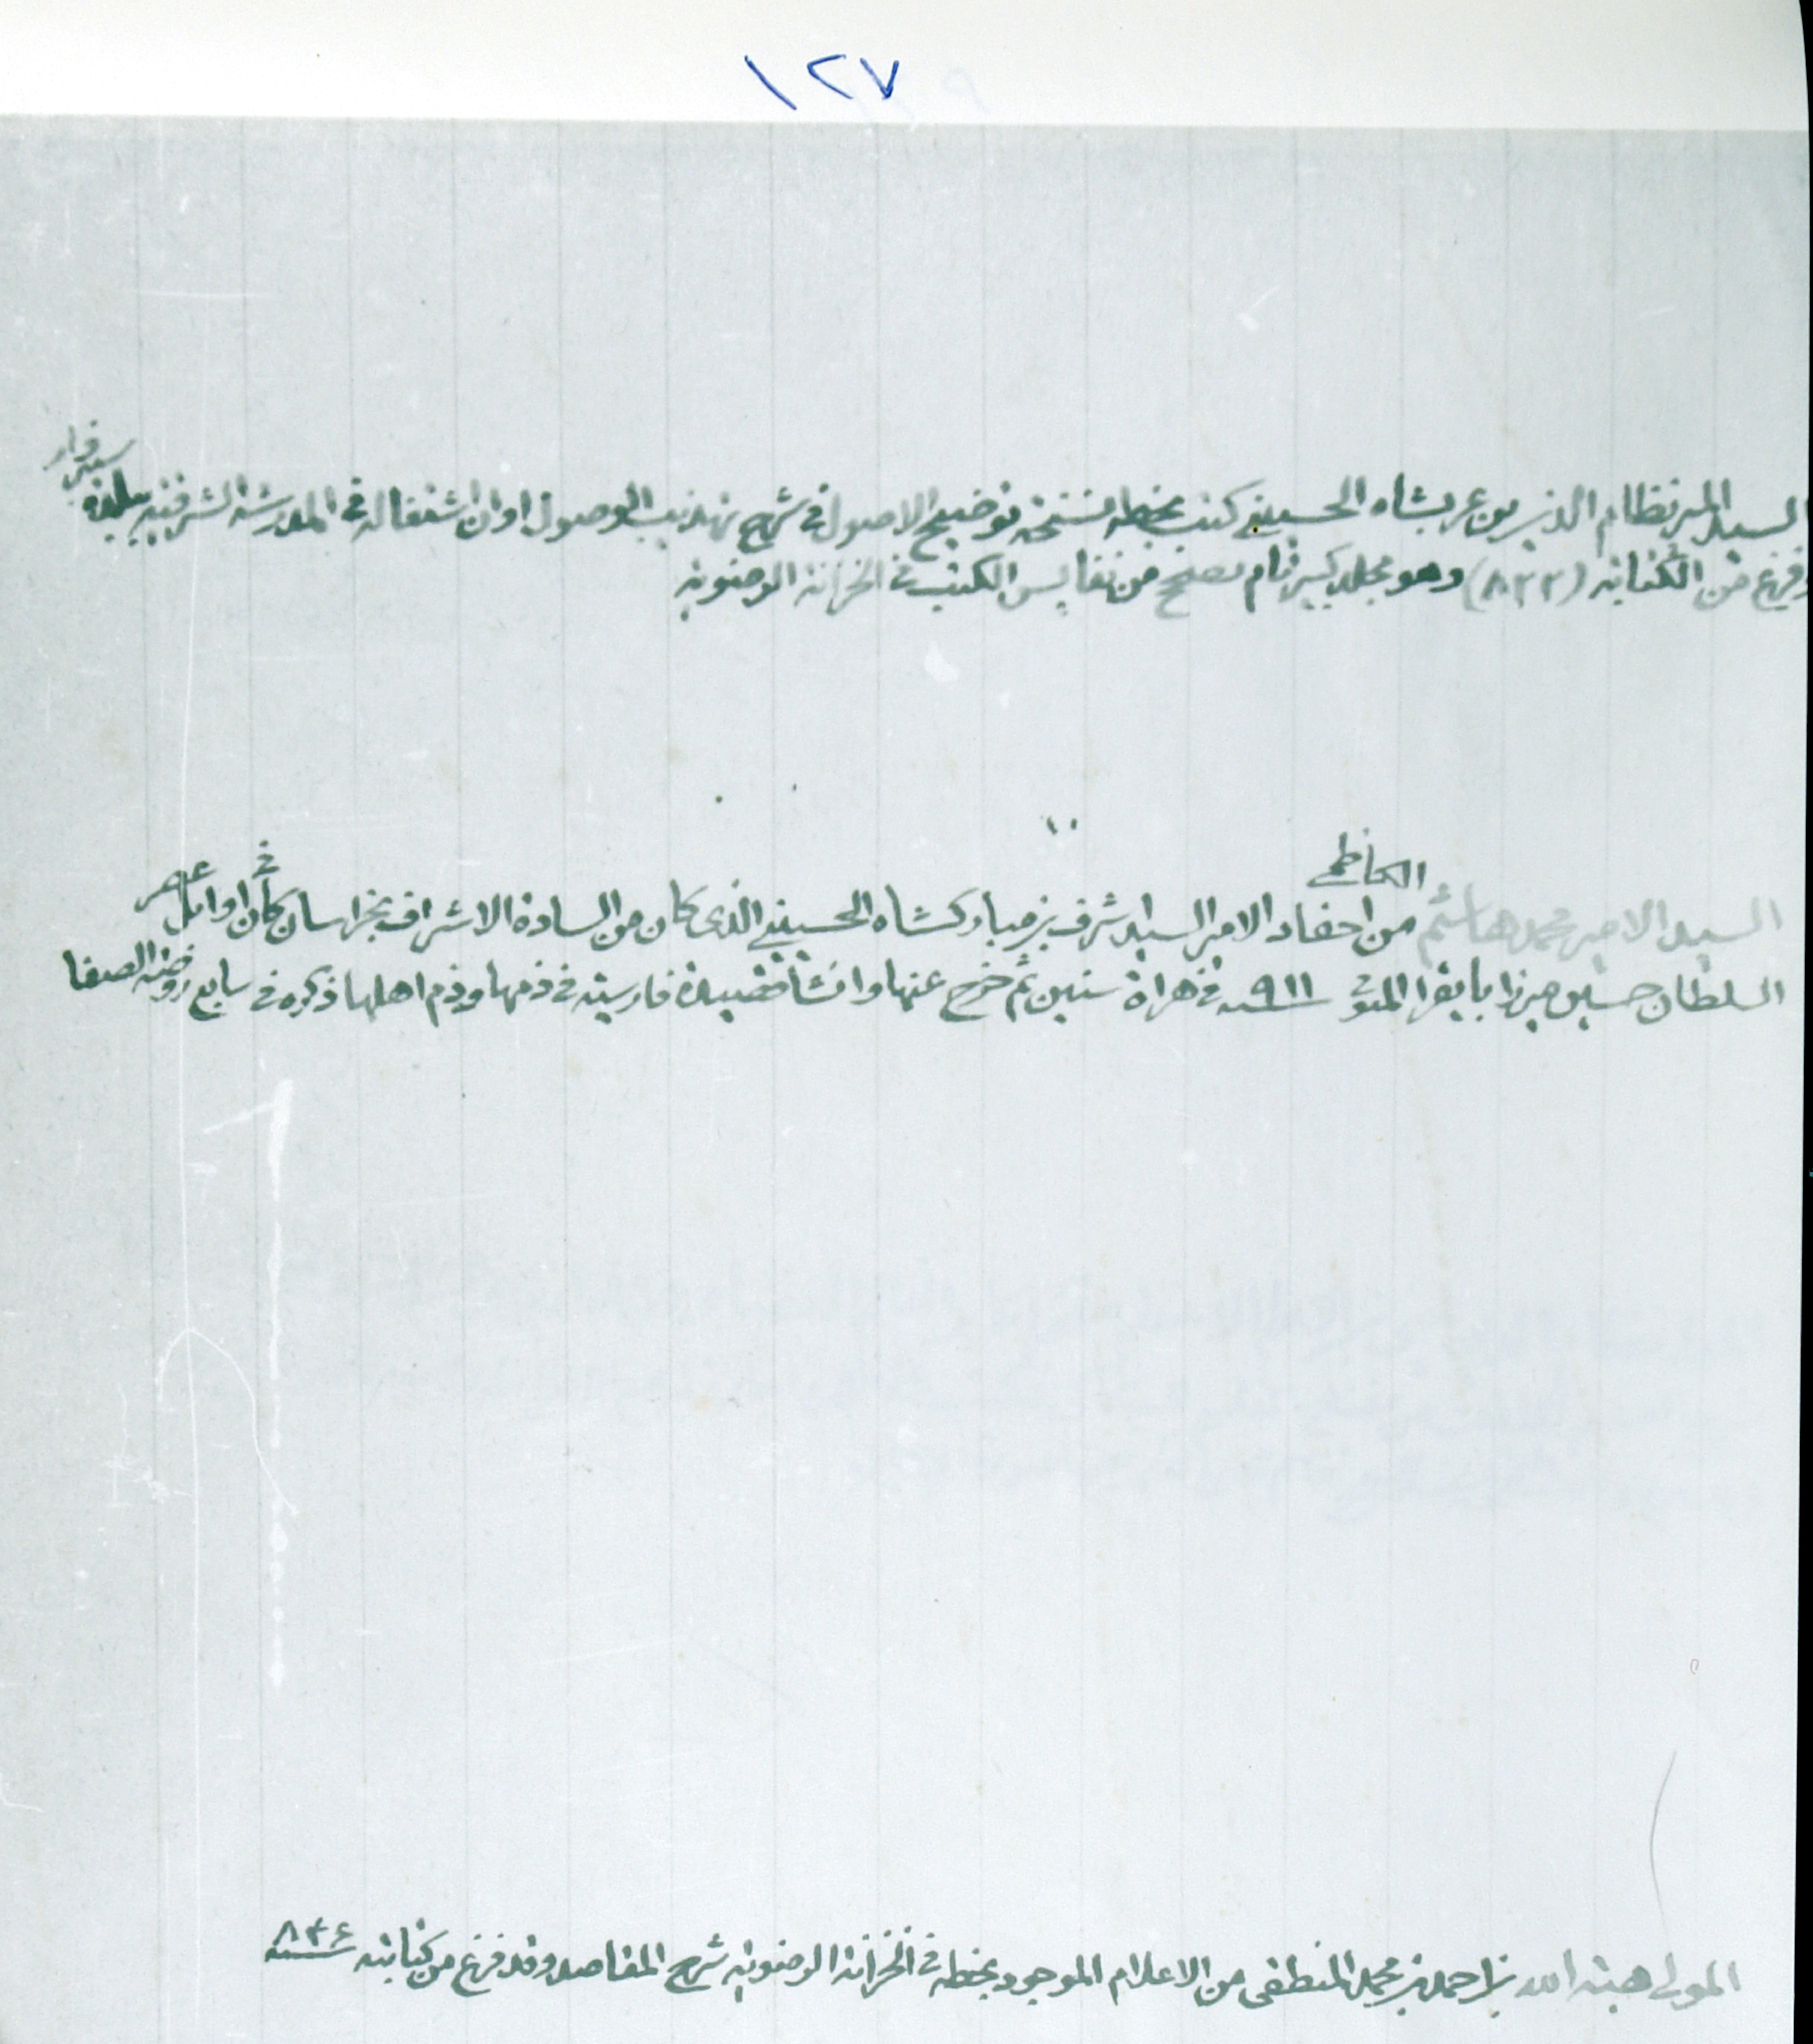 ١٢٧
السيد المير نظام الدين بن عربشاه الحسيني كتب بخطه نسخة توضيح الاصول في شرح تهذيب الوصول اوان اشتغاله في المدرسة الشرفية ببلدة سبزوار
وفرغ من الكتابة (٨٢٢) وهو مجلد كبير تام مصحح من نفايس الكتب في الخزانة الرضوية
السيد الامير محمد هاشم الكاظمي من احفاد الامير السيد شرف بن مباركشاه الحسيني الذي كان من السادة الاشراف بخراسان كان في اوائل عصر
السلطان حسين ميرزا بايقرا المتوفى سنة ٩١١ في هراة سنين ثم خرج عنها وانشأ قصيدة فارسية في ذمها وذم اهلها ذكره في سابع روضة الصفا
المولى هبة الله بن احمد بن محمد المنطقي من الاعلام الموجود بخطه في الخزانة الرضوية شرح المقاصد وقد فرغ من كتابته سنة